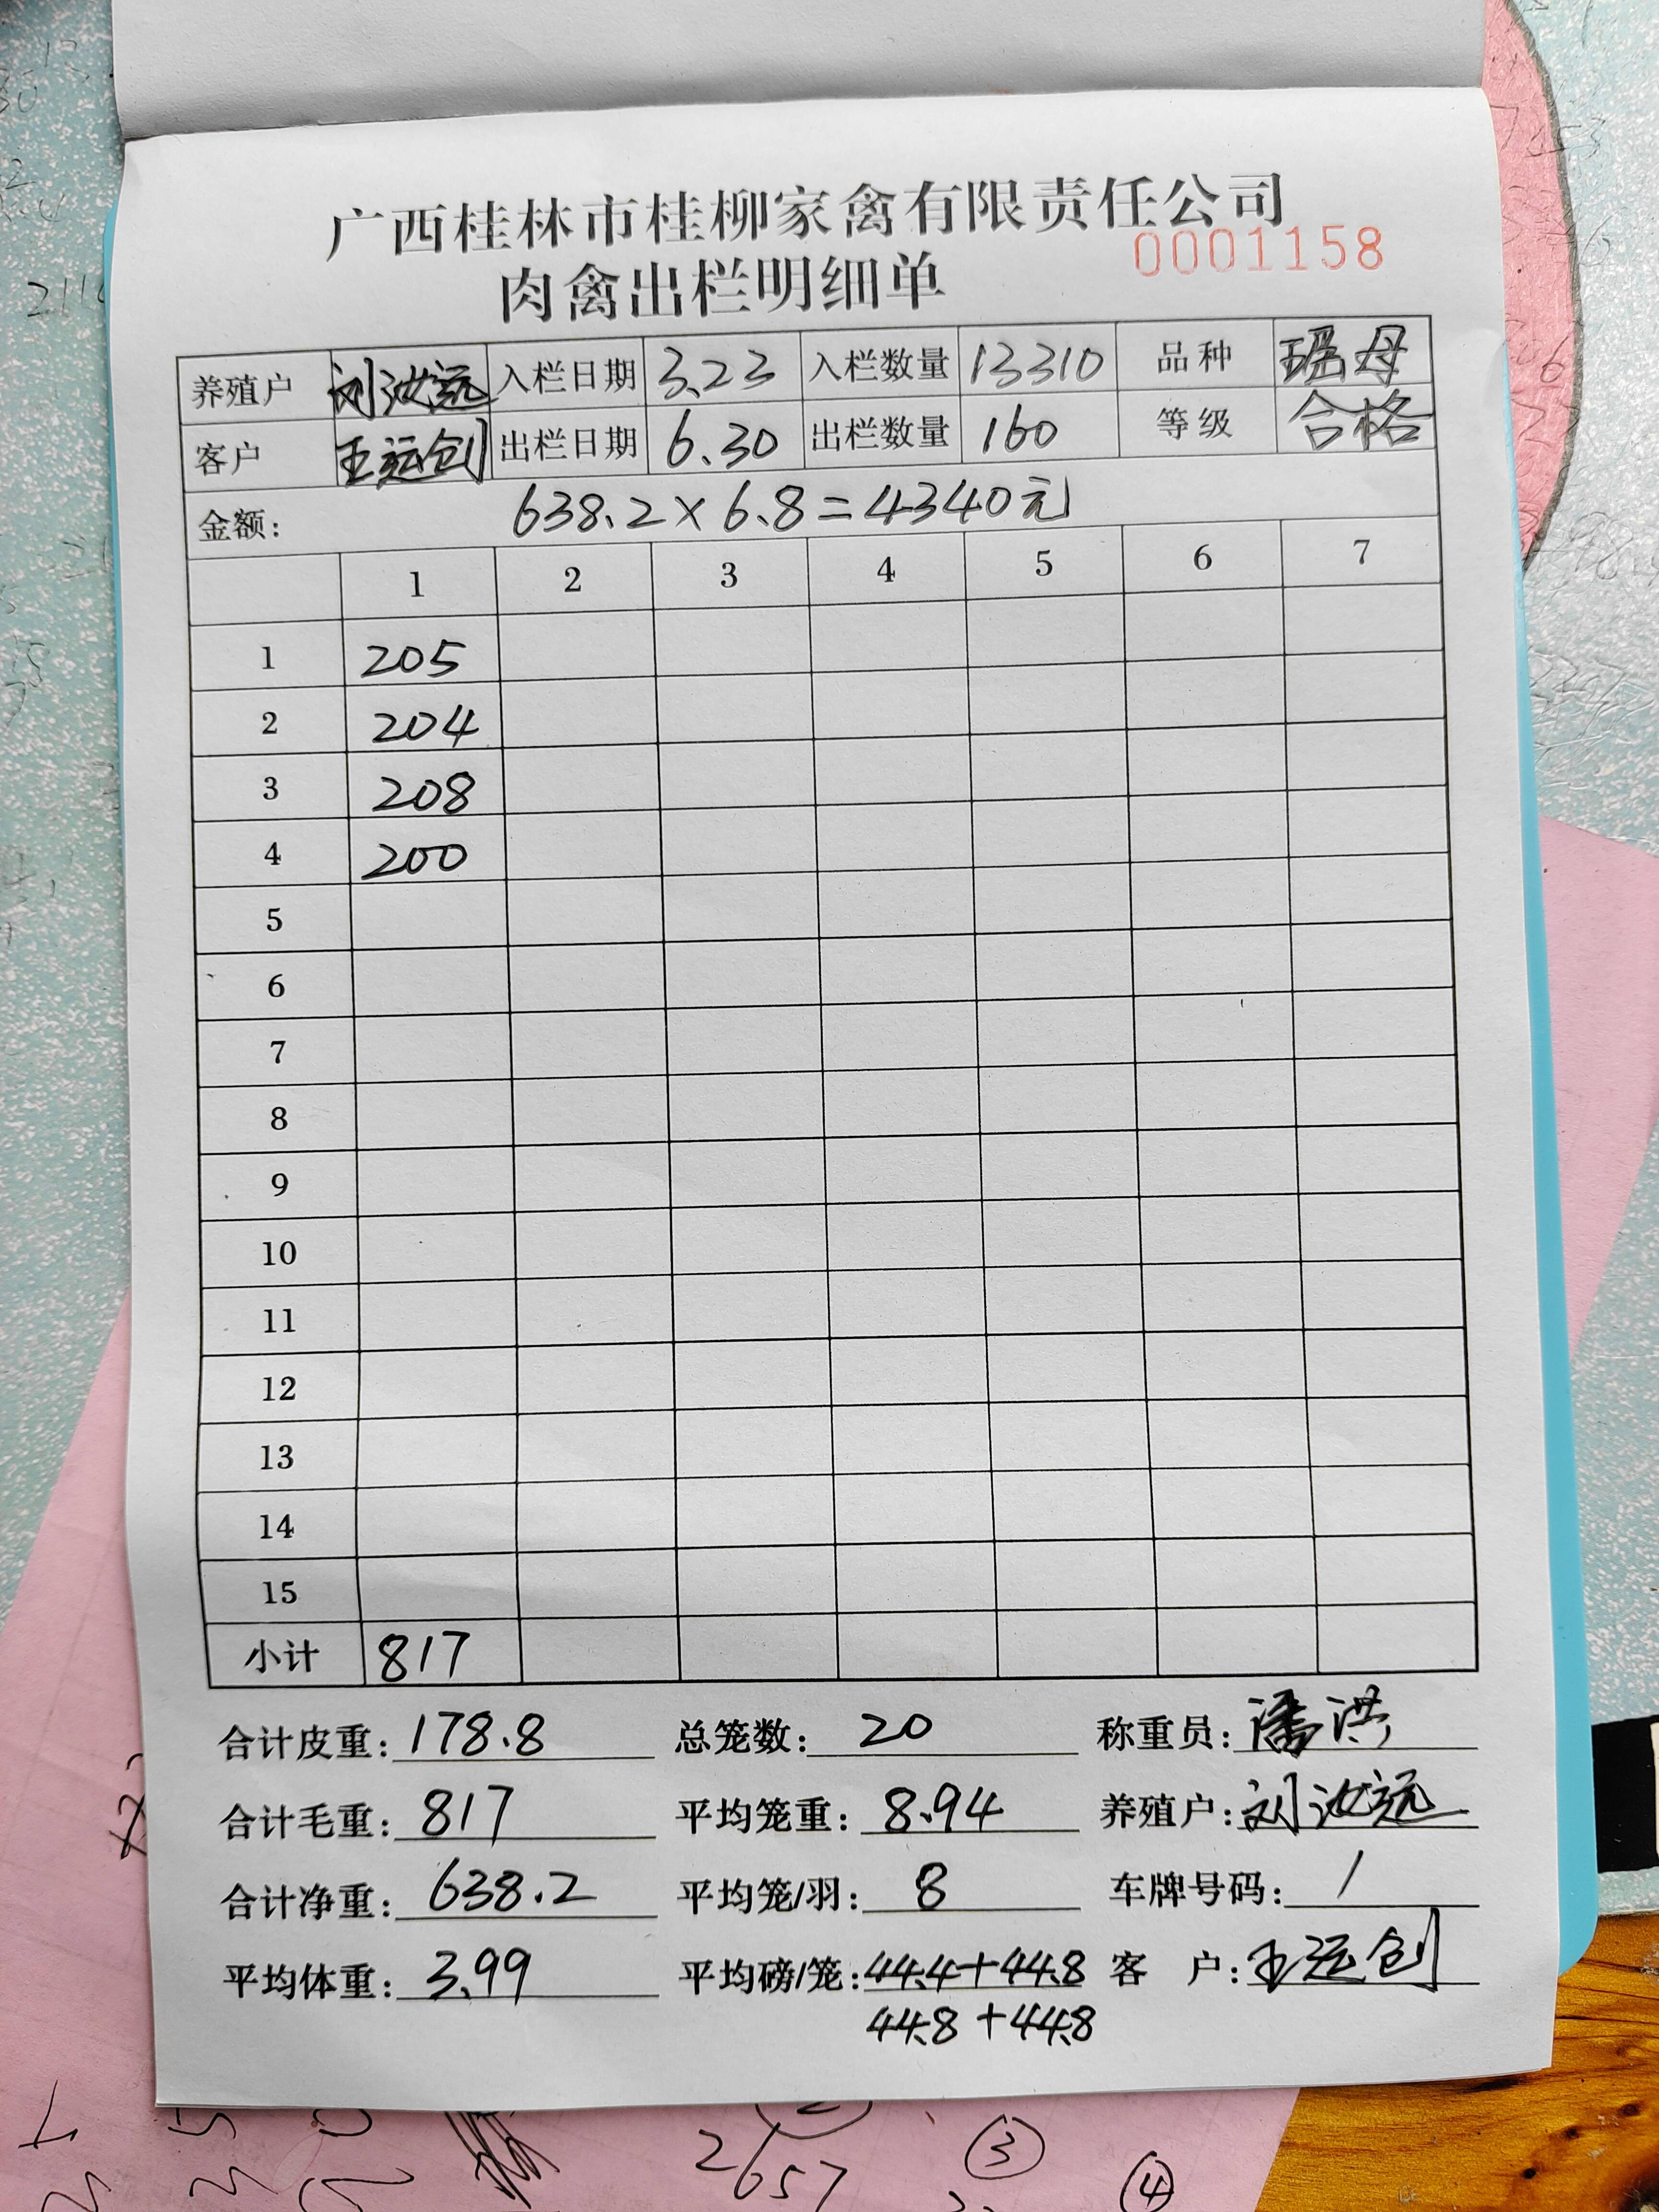 广西桂林市桂柳家禽有限责任公司
0001158
肉禽出栏明细单
养殖户 刘汝远 入栏日期 3.23 入栏数量 13310 品种 瑶母
客户 王运创 出栏日期 6.30 出栏数量 160 等级 合格
金额: 638.2×6.8=4340元
1 2 3 4 5 6 7
1 205
2 204
3 208
4 200
5
6
7
8
9
10
11
12
13
14
15
小计 817
合计皮重: 178.8 总笼数: 20 称重员: 潘洪
合计毛重: 817 平均笼重: 8.94 养殖户: 刘汝远
合计净重: 638.2 平均笼/羽: 8 车牌号码: /
平均体重: 3.99 平均磅/笼: 44.4+44.8 客 户: 王运创
44.8+44.8
2657
③
④